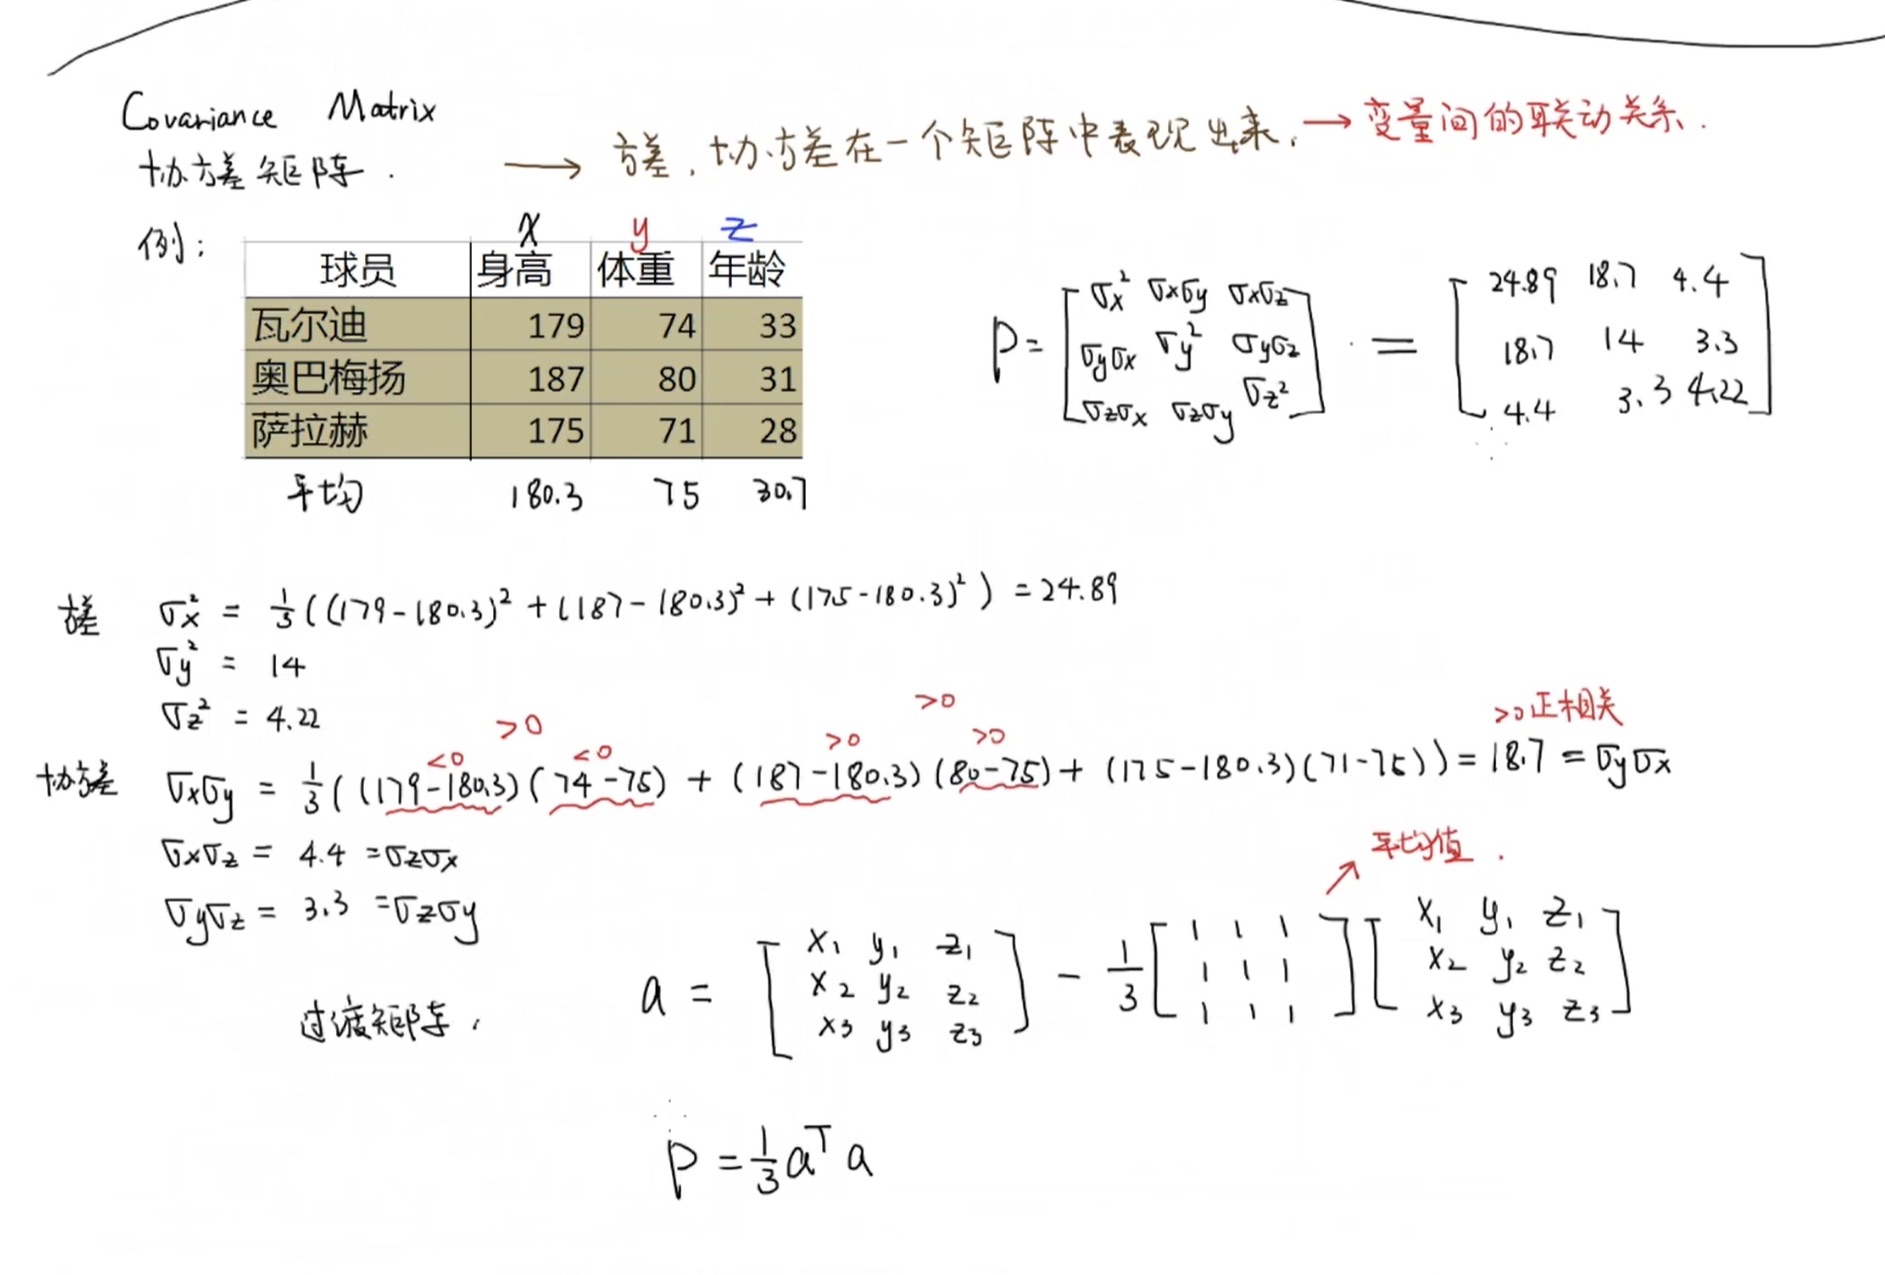 Covariance Matrix
协方差矩阵. → 方差, 协方差在一个矩阵中表现出来. → 变量间的联动关系.
例:
x y z
球员 身高 体重 年龄
瓦尔迪 179 74 33
奥巴梅扬 187 80 31
萨拉赫 175 71 28
平均 180.3 75 30.7
P = [σx² σxσy σxσz
σyσx σy² σyσz
σzσx σzσy σz²] = [24.89 18.7 4.4
18.7 14 3.3
4.4 3.3 4.22]
方差 σx² = 1/3((179-180.3)² + (187-180.3)² + (175-180.3)²) = 24.89
σy² = 14
σz² = 4.22
>0 >0 >0正相关
<0 <0 >0 >0
协方差 σxσy = 1/3((179-180.3)(74-75) + (187-180.3)(80-75) + (175-180.3)(71-75)) = 18.7 = σyσx
σxσz = 4.4 = σzσx
σyσz = 3.3 = σzσy
→ 平均值.
过渡矩阵. a = [x₁ y₁ z₁
x₂ y₂ z₂
x₃ y₃ z₃] - 1/3 [1 1 1
1 1 1
1 1 1] [x₁ y₁ z₁
x₂ y₂ z₂
x₃ y₃ z₃]
P = 1/3 aᵀ a